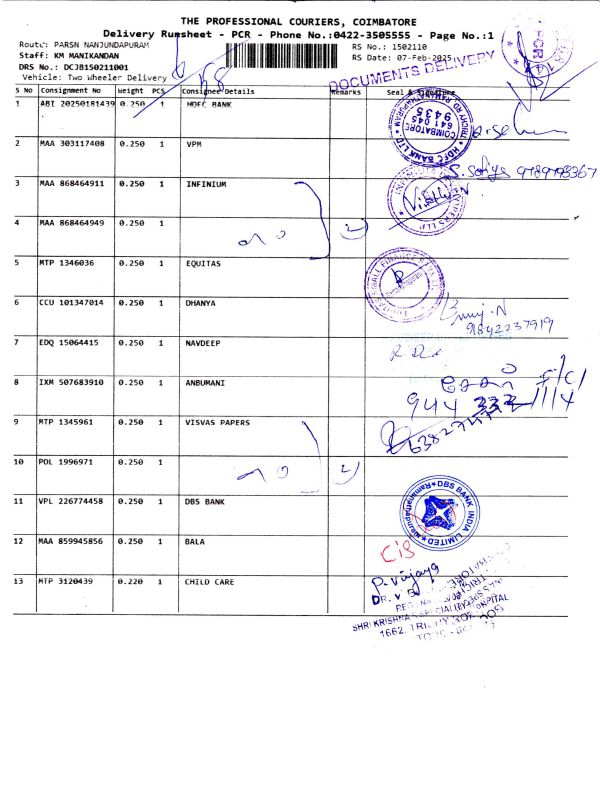 THE PROFESSIONAL COURIERS, COIMBATORE
Delivery Runsheet - PCR - Phone No.:0422-3505555 - Page No.:1
Route: PARSN NANJUNDAPURAM
RS No.: 1502110
Staff: KM MANIKANDAN
RS Date: 07-Feb-2025
DRS No.: DCJB150211001
Vehicle: Two Wheeler Delivery
DOCUMENTS DELIVERY
PCR 14
S No Consignment No Weight PCS Consignee Details Remarks Seal & Signature
1 ABI 20250181439 0.250 1 HDFC BANK
HDFC BANK LTD.
COIMBATORE
641 045
9435
2 MAA 303117408 0.250 1 VPM
3 MAA 868464911 0.250 1 INFINIUM
4 MAA 868464949 0.250 1
5 MTP 1346036 0.250 1 EQUITAS
6 CCU 101347014 0.250 1 DHANYA
9842237919
7 EDQ 15064415 0.250 1 NAVDEEP
8 IXM 507683910 0.250 1 ANBUMANI
9 MTP 1345961 0.250 1 VISVAS PAPERS
10 POL 1996971 0.250 1
11 VPL 226774458 0.250 1 DBS BANK
DBS BANK INDIA LIMITED
12 MAA 859945856 0.250 1 BALA
13 MTP 3120439 0.220 1 CHILD CARE
P. Vijaya
SHRI KRISHNA'S SPECIALITY HOSPITAL